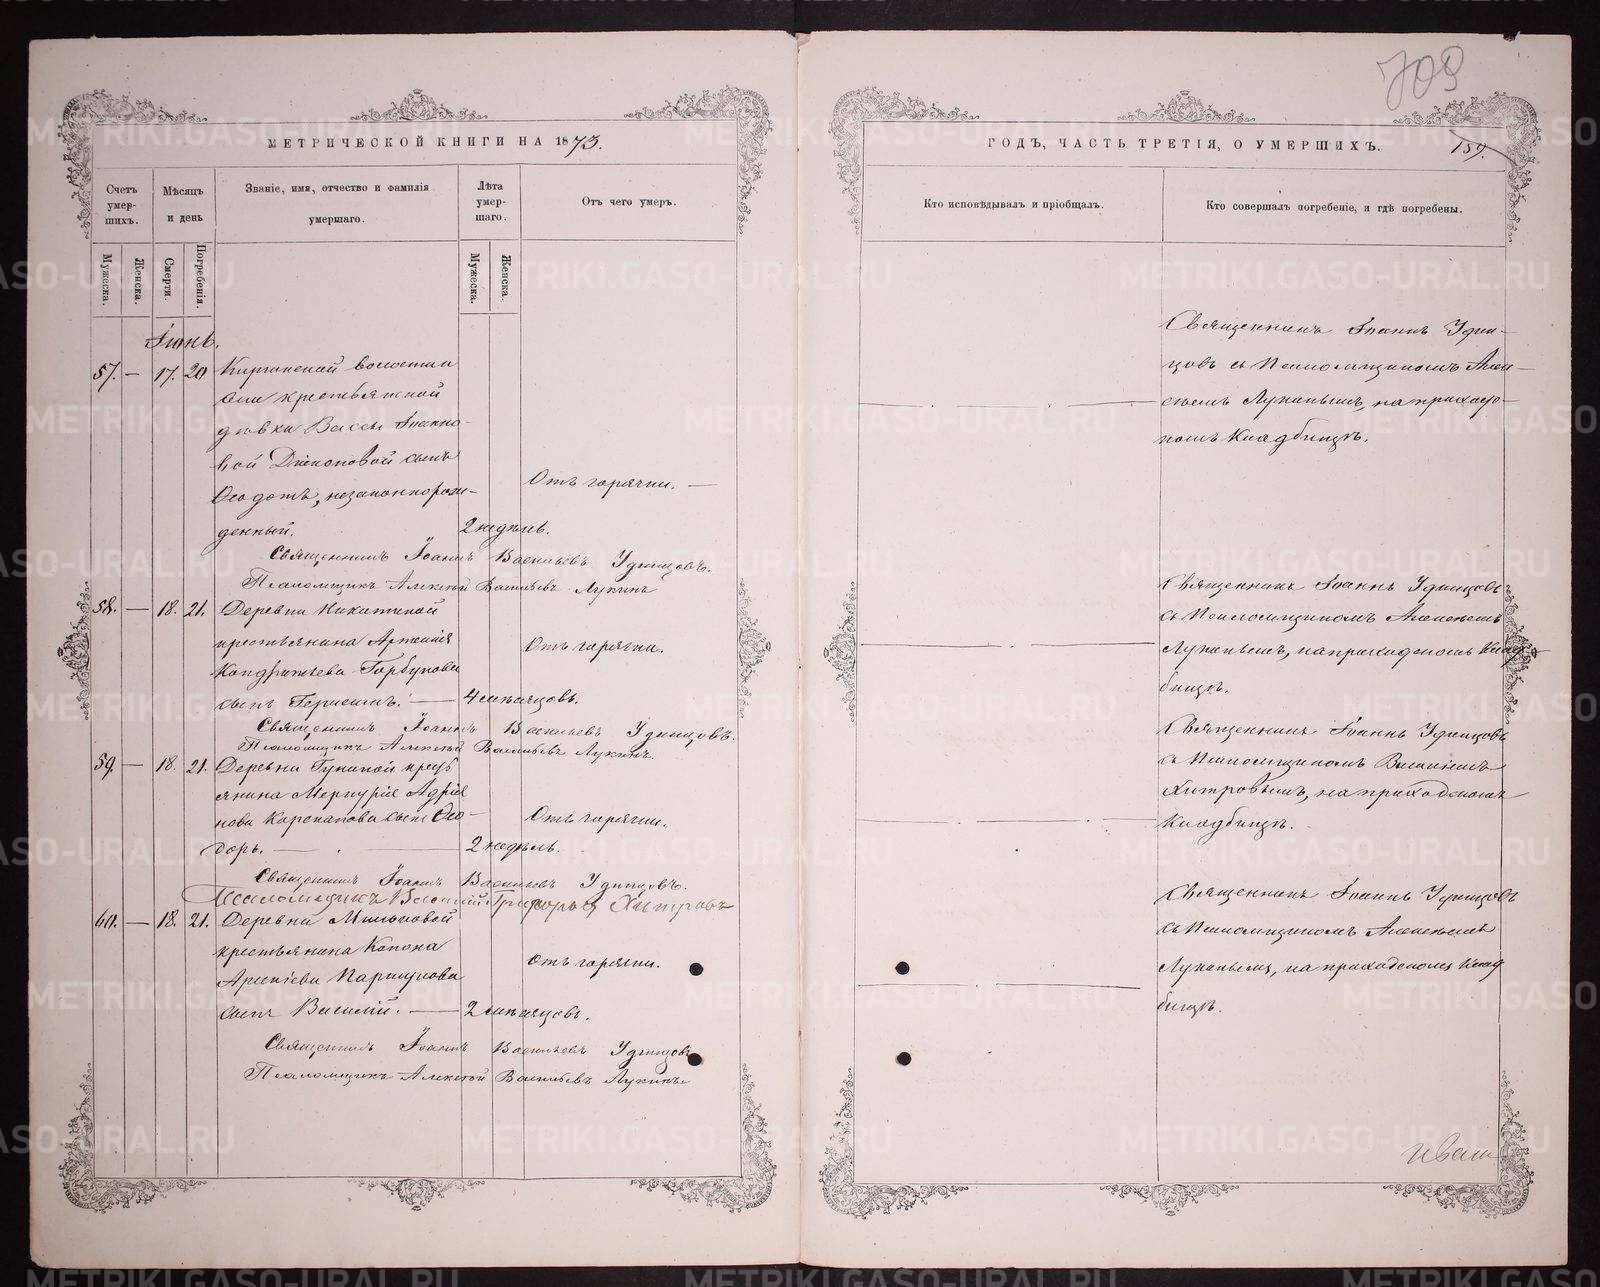 709
МЕТРИЧЕСКОЙ КНИГИ НА 1873.
ГОДЪ, ЧАСТЬ ТРЕТІЯ, О УМЕРШИХЪ.
159.
Счетъ умер-шихъ.
Мѣсяцъ и день
Званіе, имя, отчество и фамилія умершаго.
Лѣта умер-шаго.
Отъ чего умеръ.
Мужеска.
Женска.
Смерти.
Погребенія.
Мужеска.
Женска.
Кто исповѣдывалъ и пріобщалъ.
Кто совершалъ погребеніе, и гдѣ погребены.
Іюнь.
57. — 17. 20 Киргинской волости
крестьянской
дѣвки Вассы Іоанно-
вой Дьяконовой сынъ
Ѳеодотъ, незаконнорож-
денный.
2 недѣль.
Отъ горячки. —
Священникъ Іоаннъ Удин-
цовъ съ Псаломщикомъ Алек-
сѣемъ Лукинымъ, на приходс-
комъ Кладбищѣ.
Священникъ Іоаннъ Васильевъ Удинцовъ.
Псаломщикъ Алексѣй Васильевъ Лукинъ
58. — 18. 21. Деревни Никитиной
крестьянина Артемія
Кондратьева Горбунова
сынъ Германъ. — 4 мѣсяцовъ.
Отъ горячки.
Священникъ Іоаннъ Удинцовъ
съ Псаломщикомъ Алексѣемъ
Лукинымъ, на приходскомъ Клад-
бищѣ.
Священникъ Іоаннъ Васильевъ Удинцовъ.
Псаломщикъ Алексѣй Васильевъ Лукинъ.
59. — 18. 21. Деревни Гуниной крест
янина Меркурія Адріа
нова Корепанова сынъ Ѳео-
доръ. — 2 недѣль.
Отъ горячки.
Священникъ Іоаннъ Удинцовъ
съ Псаломщикомъ Василіемъ
Хитровымъ, на приходскомъ
Кладбищѣ.
Священникъ Іоаннъ Васильевъ Удинцовъ.
Псаломщикъ Василій Григорьев Хитровъ
60. — 18. 21. Деревни Мильковой
крестьянина Конона
Арсеніева Паршукова
сынъ Василій. — 2 мѣсяцовъ.
Отъ горячки.
Священникъ Іоаннъ Удинцовъ
съ Псаломщикомъ Алексѣемъ
Лукинымъ, на приходскомъ Клад
бищѣ.
Священникъ Іоаннъ Васильевъ Удинцовъ
Псаломщикъ Алексѣй Васильевъ Лукинъ
METRIKI.GASO-URAL.RU